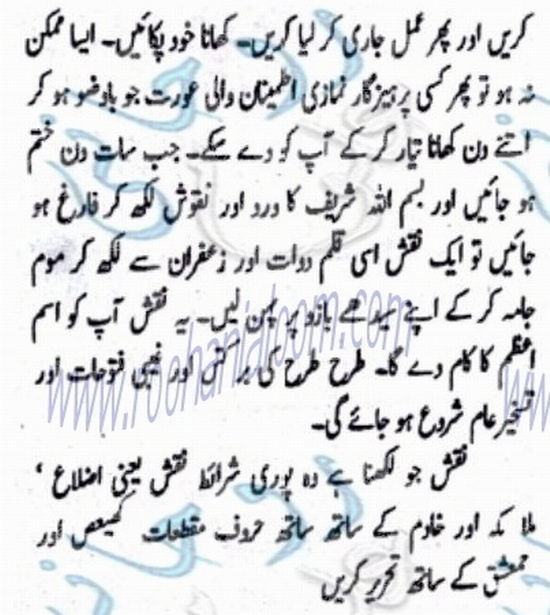 کریں اور پھر عمل جاری کر لیا کریں۔ کھانا خود پکائیں۔ ایسا ممکن
نہ ہو تو پھر کسی پرہیزگار نمازی اطمینان والی عورت جو باوضو ہو کر
اتنے دن کھانا تیار کر کے آپ کو دے سکے۔ جب سات دن ختم
ہو جائیں اور بسم اللہ شریف کا ورد اور نقوش لکھ کر فارغ ہو
جائیں تو ایک نقش اسی قلم دوات اور زعفران سے لکھ کر موم
جامہ کر کے اپنے سیدھے بازو پر پہن لیں۔ یہ نقش آپ کو اسم
اعظم کا کام دے گا۔ طرح طرح کی برکتیں اور غیبی فتوحات اور
تسخیر عام شروع ہو جائے گی۔
نقش جو لکھنا ہے وہ پوری شرائط نقش یعنی اضلاع ‘
ملائکہ اور خادم کے ساتھ ساتھ حروف مقطعات کھیعص اور
حمعسق کے ساتھ تحریر کریں
www.roohanialoom.com